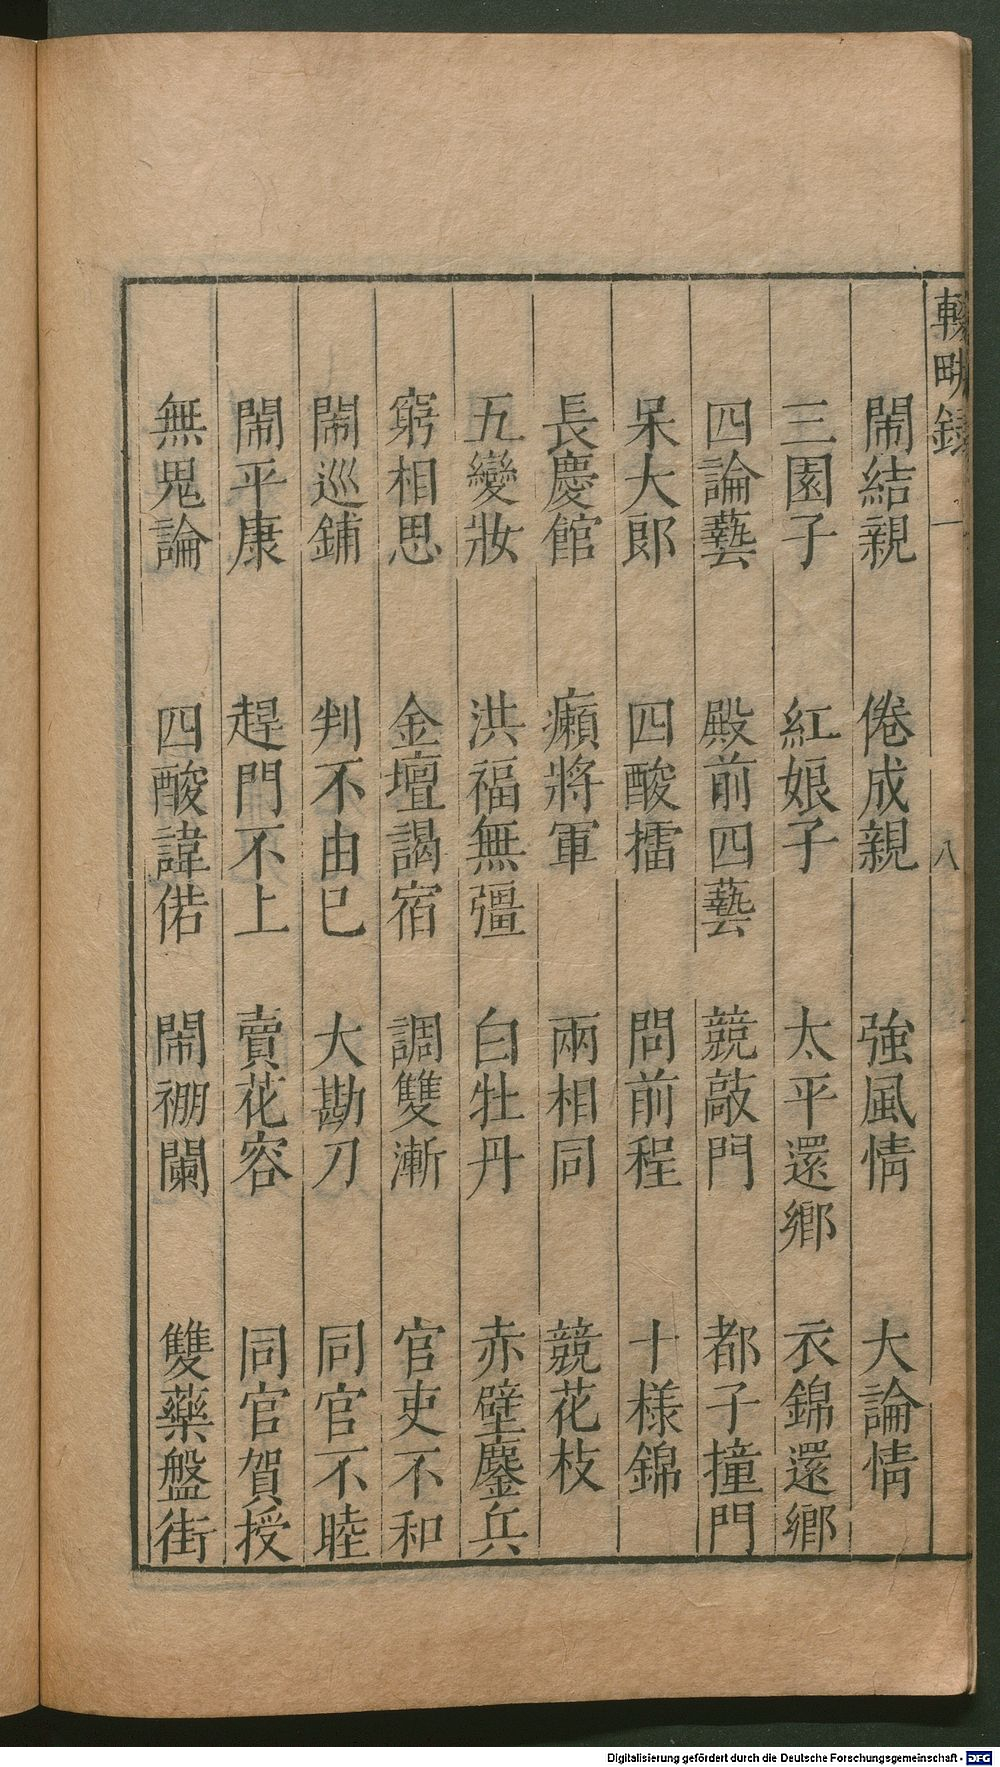 輟畊錄 一 八
鬧結親 倦成親 強風情 大論情
三園子 紅娘子 太平還鄉 衣錦還鄉
四論藝 殿前四藝 競敲門 都子撞門
呆大郎 四酸擂 問前程 十樣錦
長慶館 癩將軍 兩相同 競花枝
五變妝 洪福無彊 白牡丹 赤壁鏖兵
窮相思 金壇謁宿 調雙漸 官吏不和
鬧巡鋪 判不由巳 大勘刀 同官不睦
鬧平康 趕門不上 賣花容 同官賀授
無鬼論 四酸諱偌 鬧棚闌 雙藥盤街
Digitalisierung gefördert durch die Deutsche Forschungsgemeinschaft - DFG